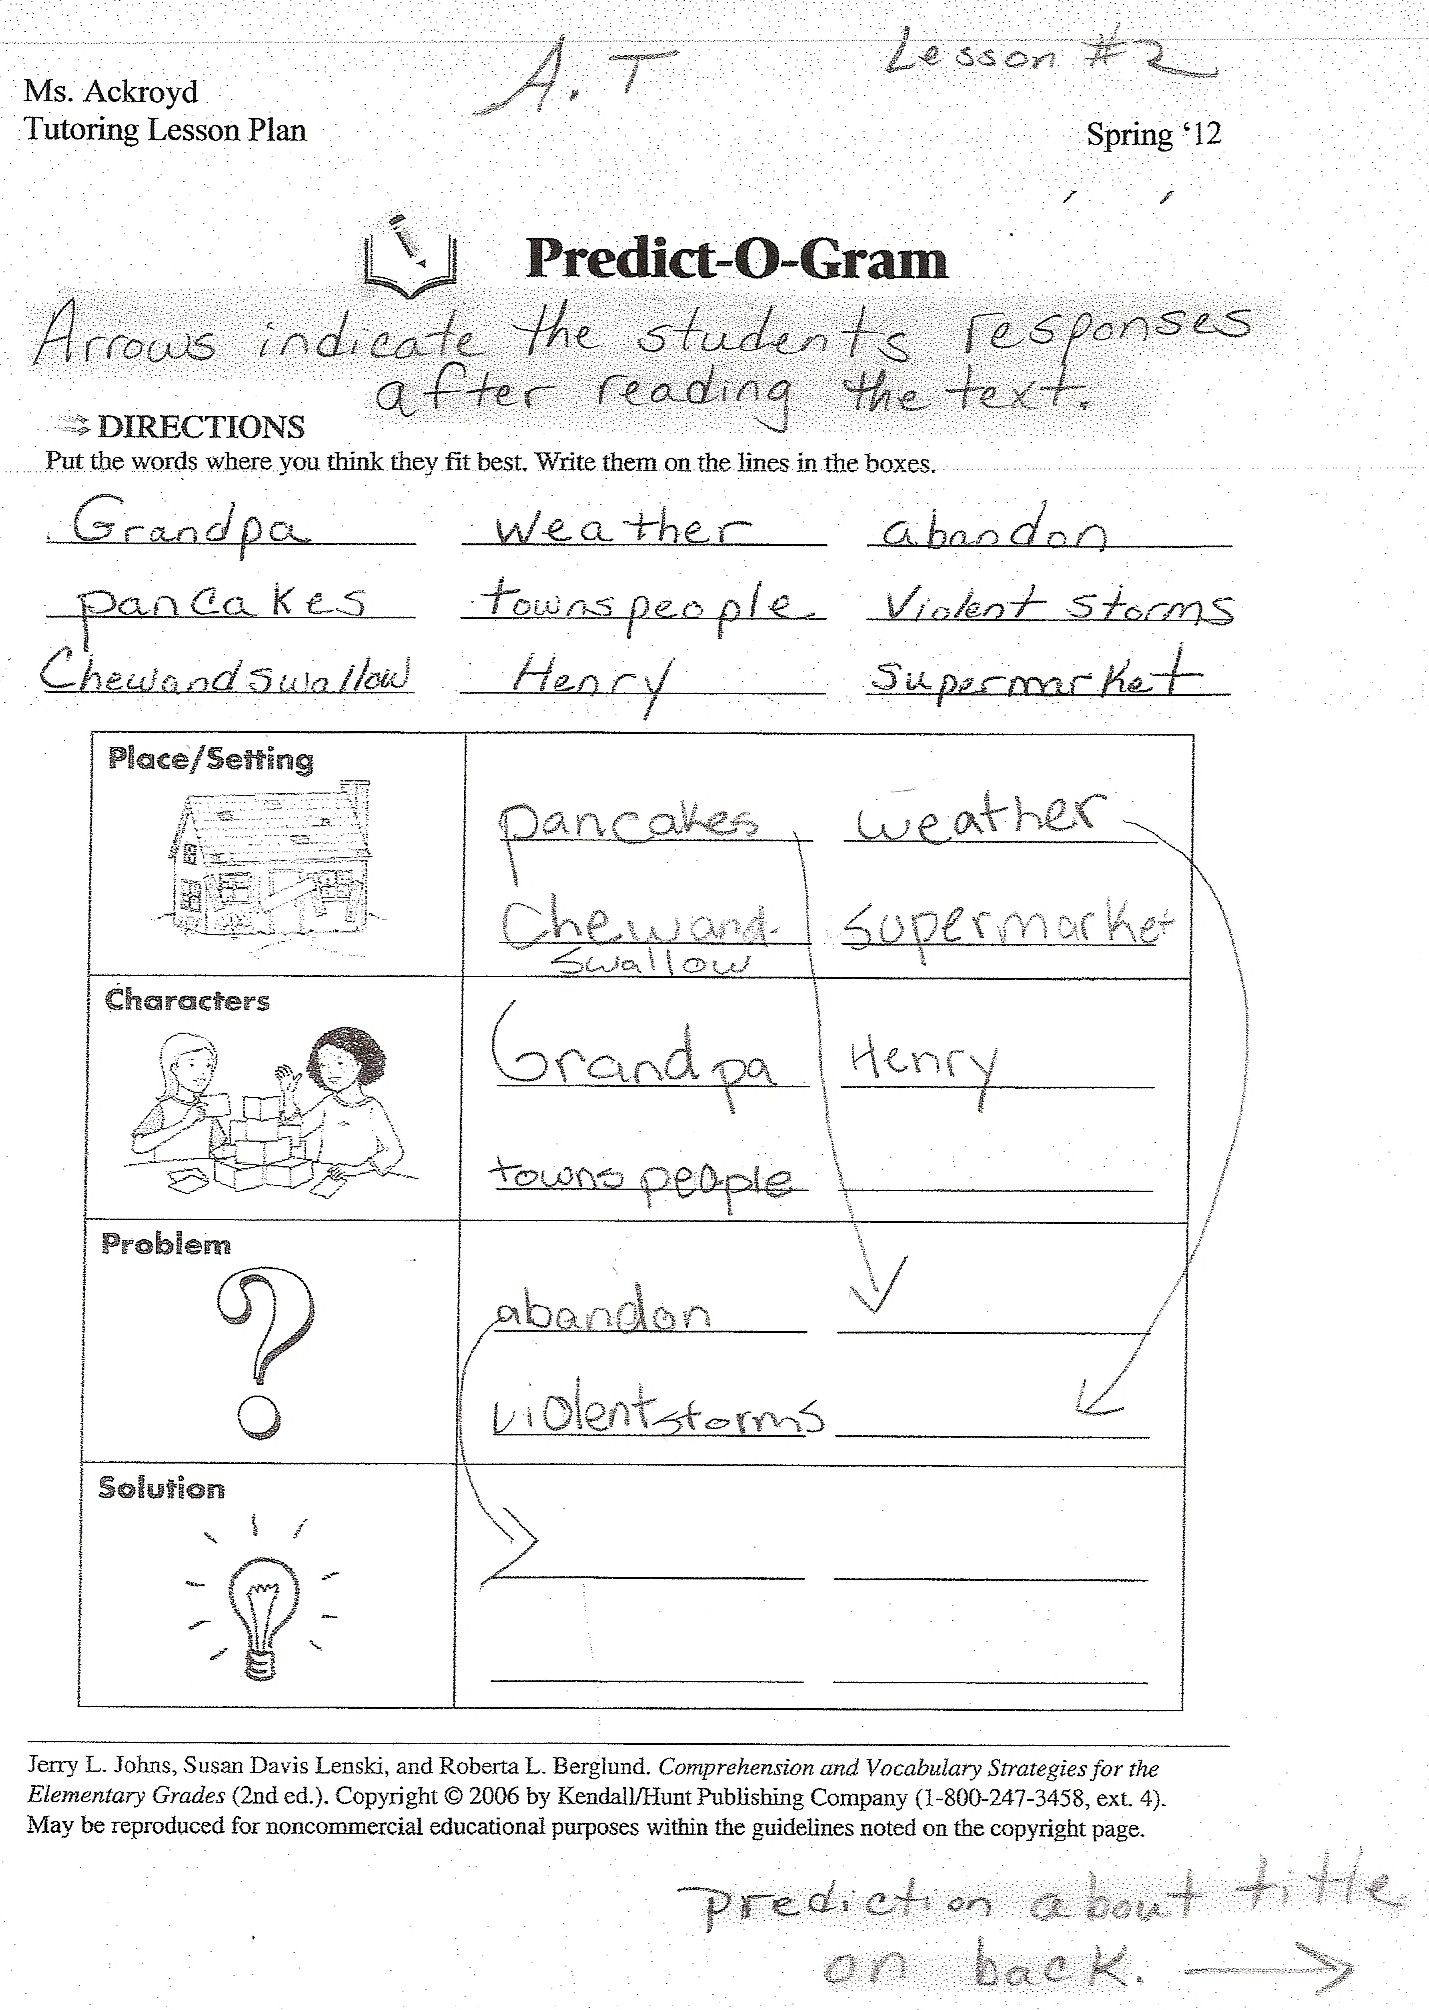 A. T Lesson #2
Ms. Ackroyd
Tutoring Lesson Plan Spring '12
Predict-O-Gram
Arrows indicate the students responses
after reading the text.
DIRECTIONS
Put the words where you think they fit best. Write them on the lines in the boxes.
Grandpa weather abandon
pancakes townspeople violent storms
Chewandswallow Henry supermarket
Place/Setting
pancakes weather
Chewand- supermarket
swallow
Characters
Grandpa Henry
towns people
Problem
abandon
violent storms
Solution
Jerry L. Johns, Susan Davis Lenski, and Roberta L. Berglund. Comprehension and Vocabulary Strategies for the
Elementary Grades (2nd ed.). Copyright © 2006 by Kendall/Hunt Publishing Company (1-800-247-3458, ext. 4).
May be reproduced for noncommercial educational purposes within the guidelines noted on the copyright page.
prediction about title
on back.